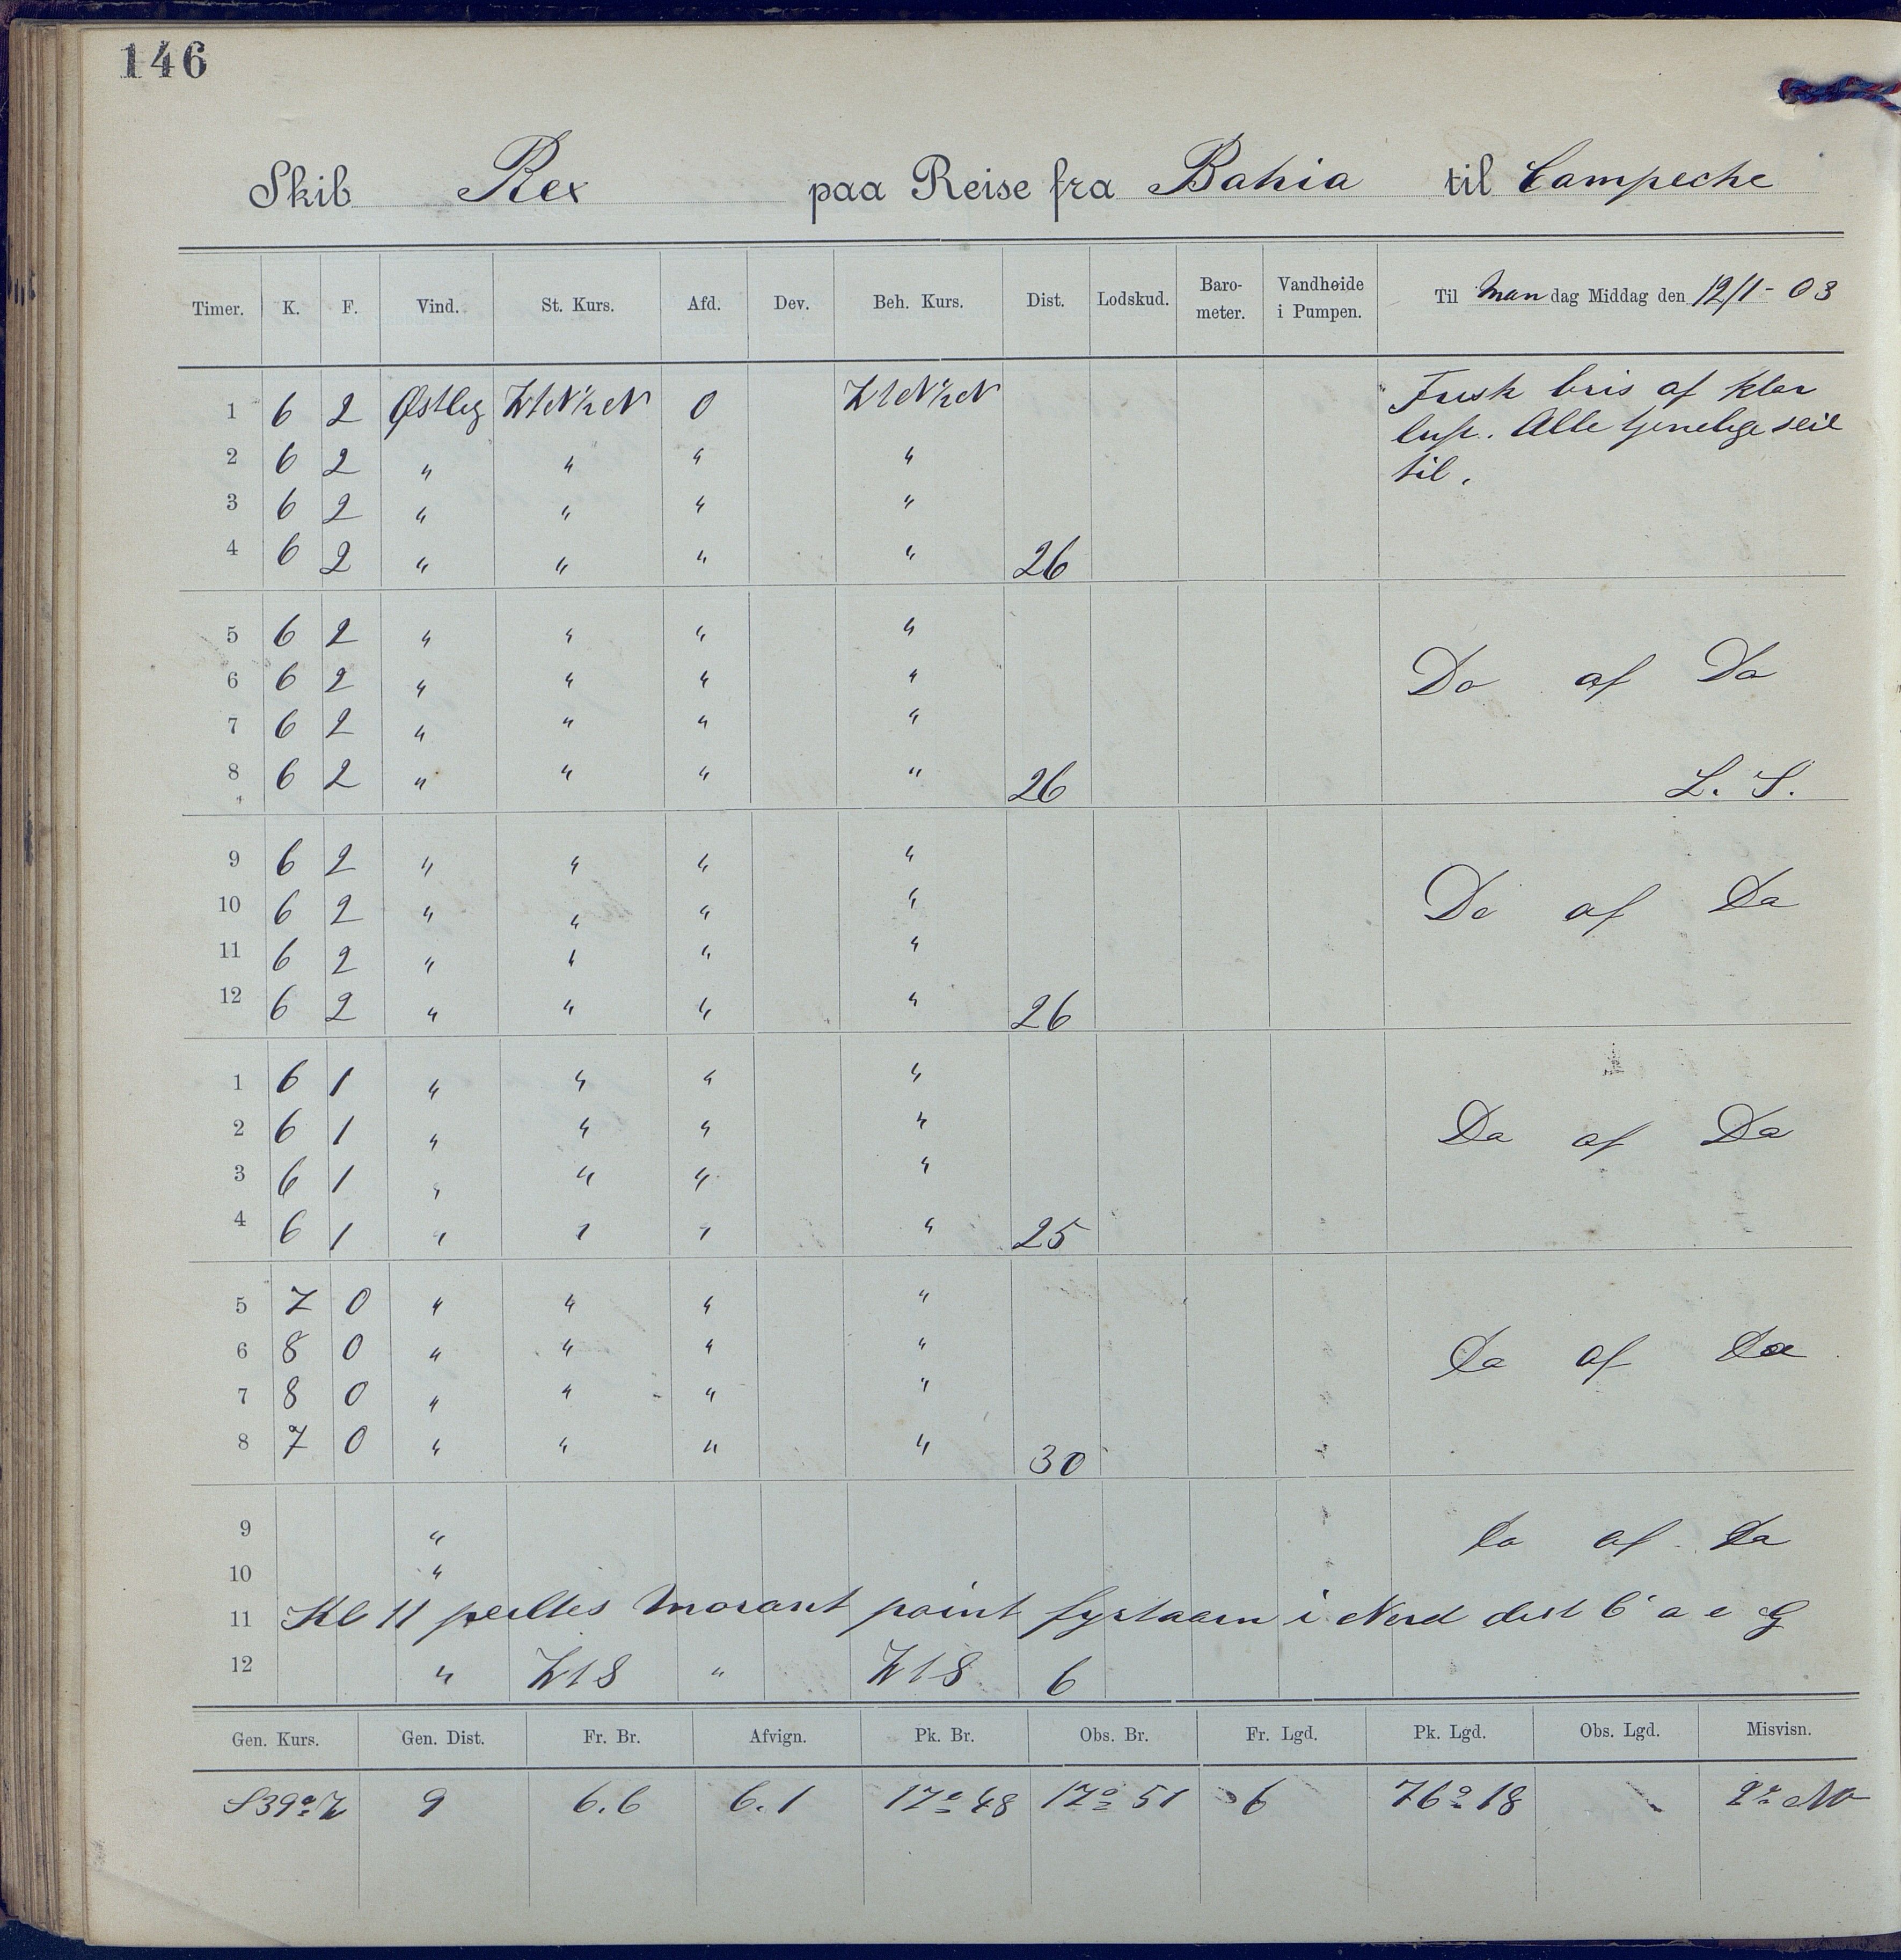 146
Skib Rex paa Reise fra Bahia til Campeche
Timer. K. F. Vind. St. Kurs. Afd. Dev. Beh. Kurs. Dist. Lodskud. Baro-meter. Vandhøide i Pumpen. Til Mandag Middag den 12/1 - 03
1 6 2 Østlig VtN½N 0 VtN½N Frisk bris af klar
luft. Alle tjenelige seil
2 6 2 " " " "
til.
3 6 2 " " " "
4 6 2 " " " " 26
5 6 2 " " " "
6 6 2 " " " " Do af Do
7 6 2 " " " "
8 6 2 " " " " 26 L. S.
9 6 2 " " " "
10 6 2 " " " " Do af Do
11 6 2 " " " "
12 6 2 " " " " 26
1 6 1 " " " "
2 6 1 " " " " Do af Do
3 6 1 " " " "
4 6 1 " " " " 25
5 7 0 " " " "
6 8 0 " " " " Do af Do
7 8 0 " " " "
8 7 0 " " " " 30
9 " Do af Do
10 "
11 Kl 11 peiltes Morant point fyrtaarn i Nord dist 6' a e G
12 " VtS " VtS 6
Gen. Kurs. Gen. Dist. Fr. Br. Afvign. Pk. Br. Obs. Br. Fr. Lgd. Pk. Lgd. Obs. Lgd. Misvisn.
S39°V 9 6.6 6.1 17° 48 17° 51 6 76° 18 2° NO